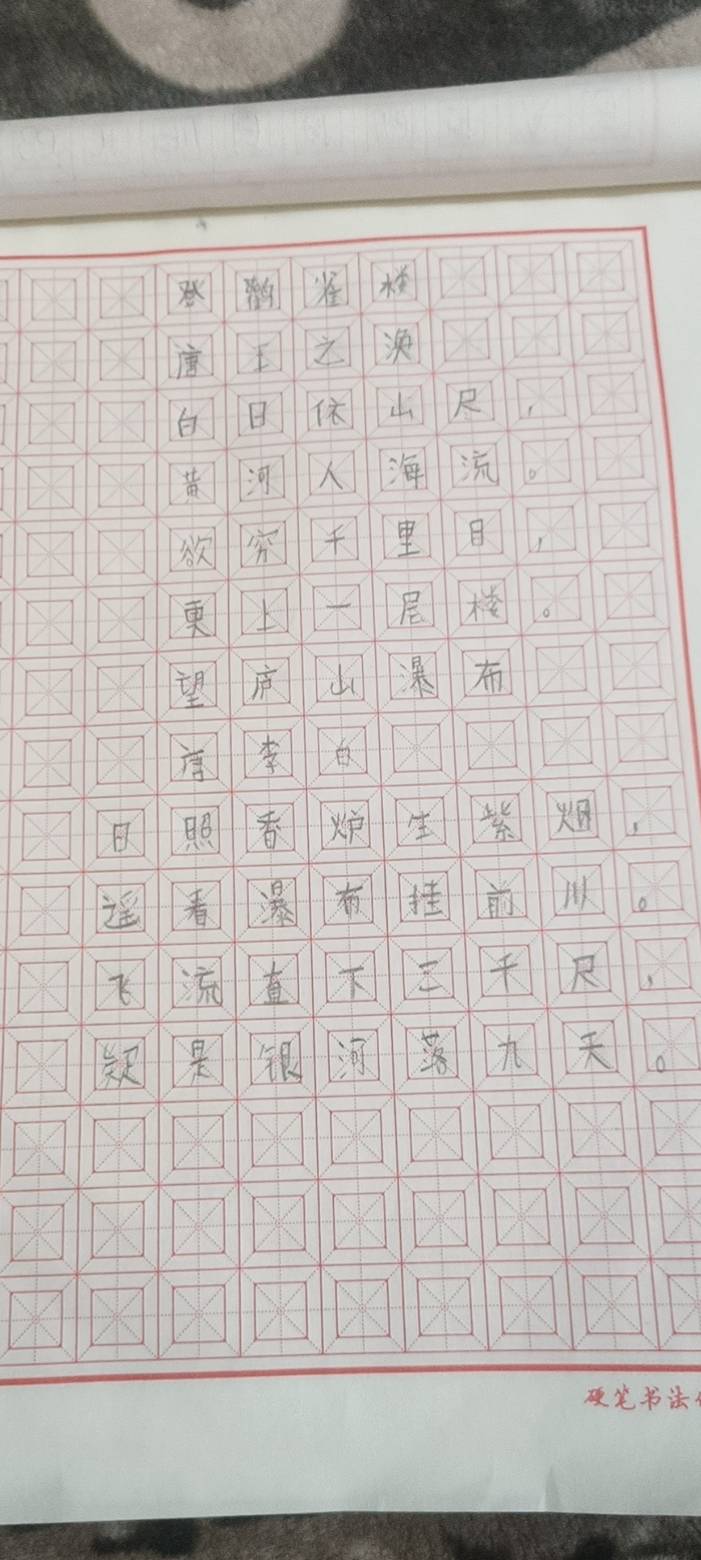 登鹳雀楼
唐王之涣
白日依山尺，
黄河人海流。
欲穷千里目，
更上一层楼。
望庐山瀑布
唐李白
日照香炉生紫烟，
遥看瀑布挂前川。
飞流直下三千尺，
疑是银河落九天。
硬笔书法